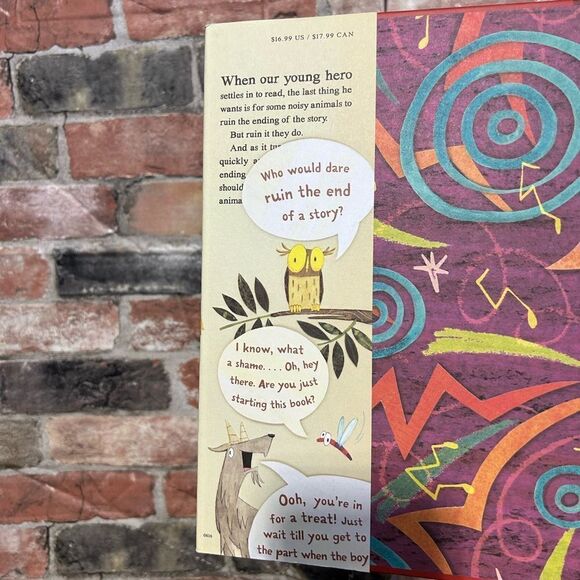 $16.99 US / $17.99 CAN
When our young hero
settles in to read, the last thing he
wants is for some noisy animals to
ruin the ending of the story.
But ruin it they do.
And as it
quickly
ending
should
Who would dare
ruin the end
of a story?
I know, what
a shame.... Oh, hey
there. Are you just
starting this book?
Ooh, you're in
for a treat! Just
wait till you get to
the part when the boy
0616